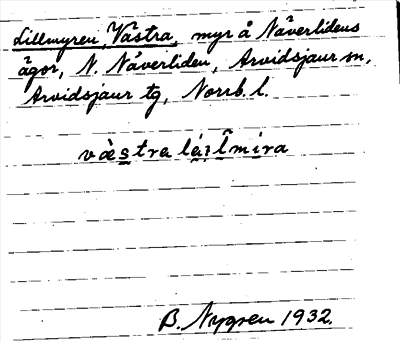 Lillmyren, Västra, myr å Näverlidens
ägor, N. Näverliden, Arvidsjaur sn,
Arvidsjaur tg, Norrb. l.
B. Nygren 1932.